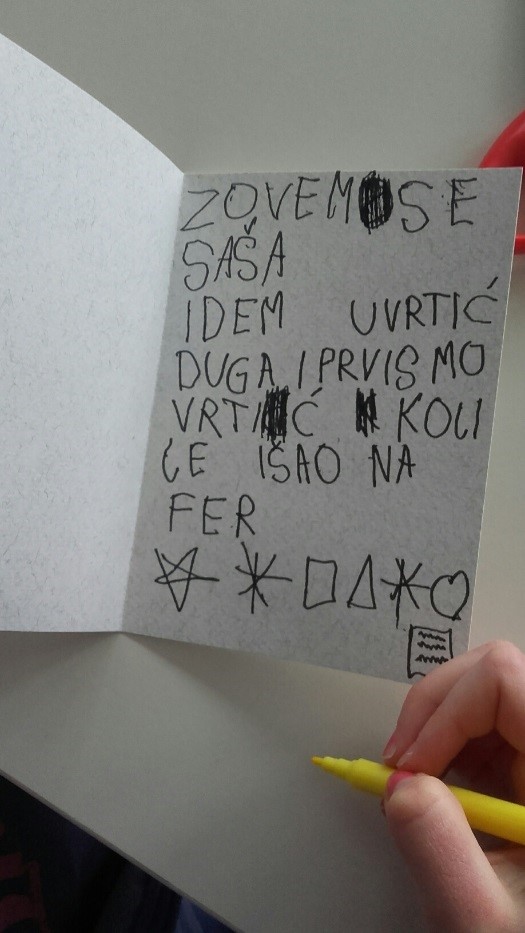 ZOVEM SE
SAŠA
IDEM UVRTIĆ
DUGA I PRVI SMO
VRTIĆ KOLI
ĆE IŠAO NA
FER